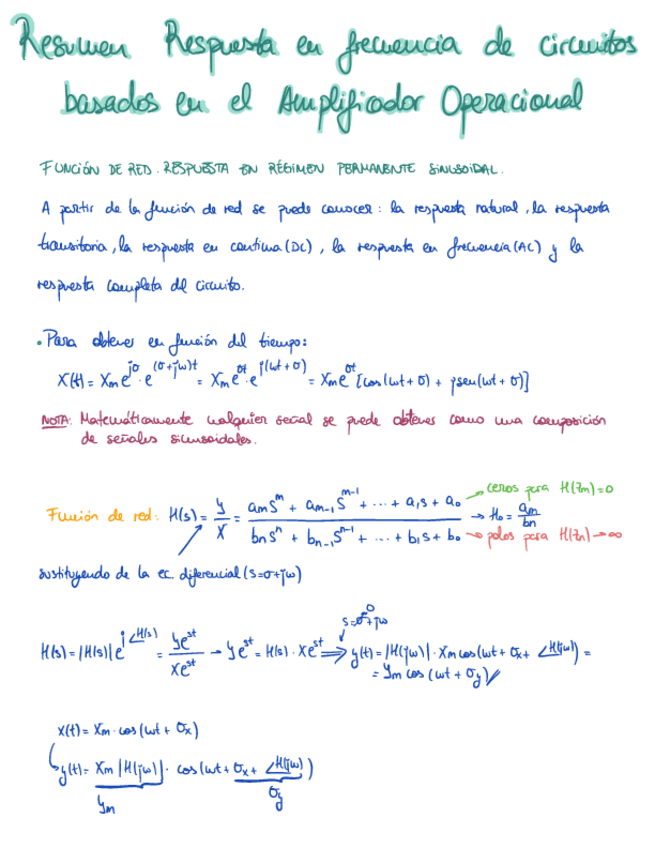 Resumen Respuesta en frecuencia de circuitos
basados en el Amplificador Operacional
FUNCIÓN DE RED. RESPUESTA EN RÉGIMEN PERMANENTE SINUSOIDAL.
A partir de la función de red se puede conocer: la respuesta natural, la respuesta
transitoria, la respuesta en continua (DC), la respuesta en frecuencia (AC) y la
respuesta completa del circuito.
• Para obtener en función del tiempo:
X(t) = Xm e^{jσ} · e^{(σ+jω)t} = Xm e^{σt} · e^{j(ωt+σ)} = Xm e^{σt} [cos(ωt+σ) + jsen(ωt+σ)]
NOTA: Matemáticamente cualquier señal se puede obtener como una composición
de señales sinusoidales.
Función de red: H(s) = y/X = (am s^m + am-1 s^{m-1} + ... + a1 s + a0)/(bn s^n + bn-1 s^{n-1} + ... + b1 s + b0) → H0 = am/bn
→ ceros para H(zm)=0
→ polos para H(zn)→∞
sustituyendo de la ec. diferencial (s=σ+jω)
H(s) = |H(s)| e^{j∠H(s)} = ye^{st}/xe^{st} → ye^{st} = H(s) · Xe^{st} ⇒ y(t) = |H(jω)| · Xm cos(ωt + σx + ∠H(jω)) =
s=σ+jω
0
= ym cos(ωt + σy)
x(t) = Xm · cos(ωt + σx)
y(t) = Xm |H(jω)| · cos(ωt + σx + ∠H(jω))
ym σy